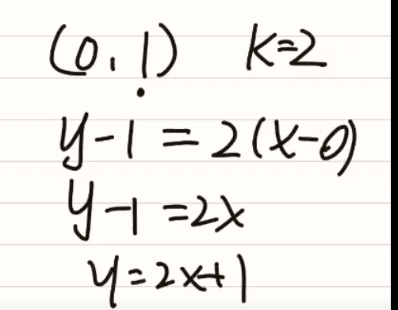 (0,1) k=2
y-1=2(x-0)
y-1=2x
y=2x+1